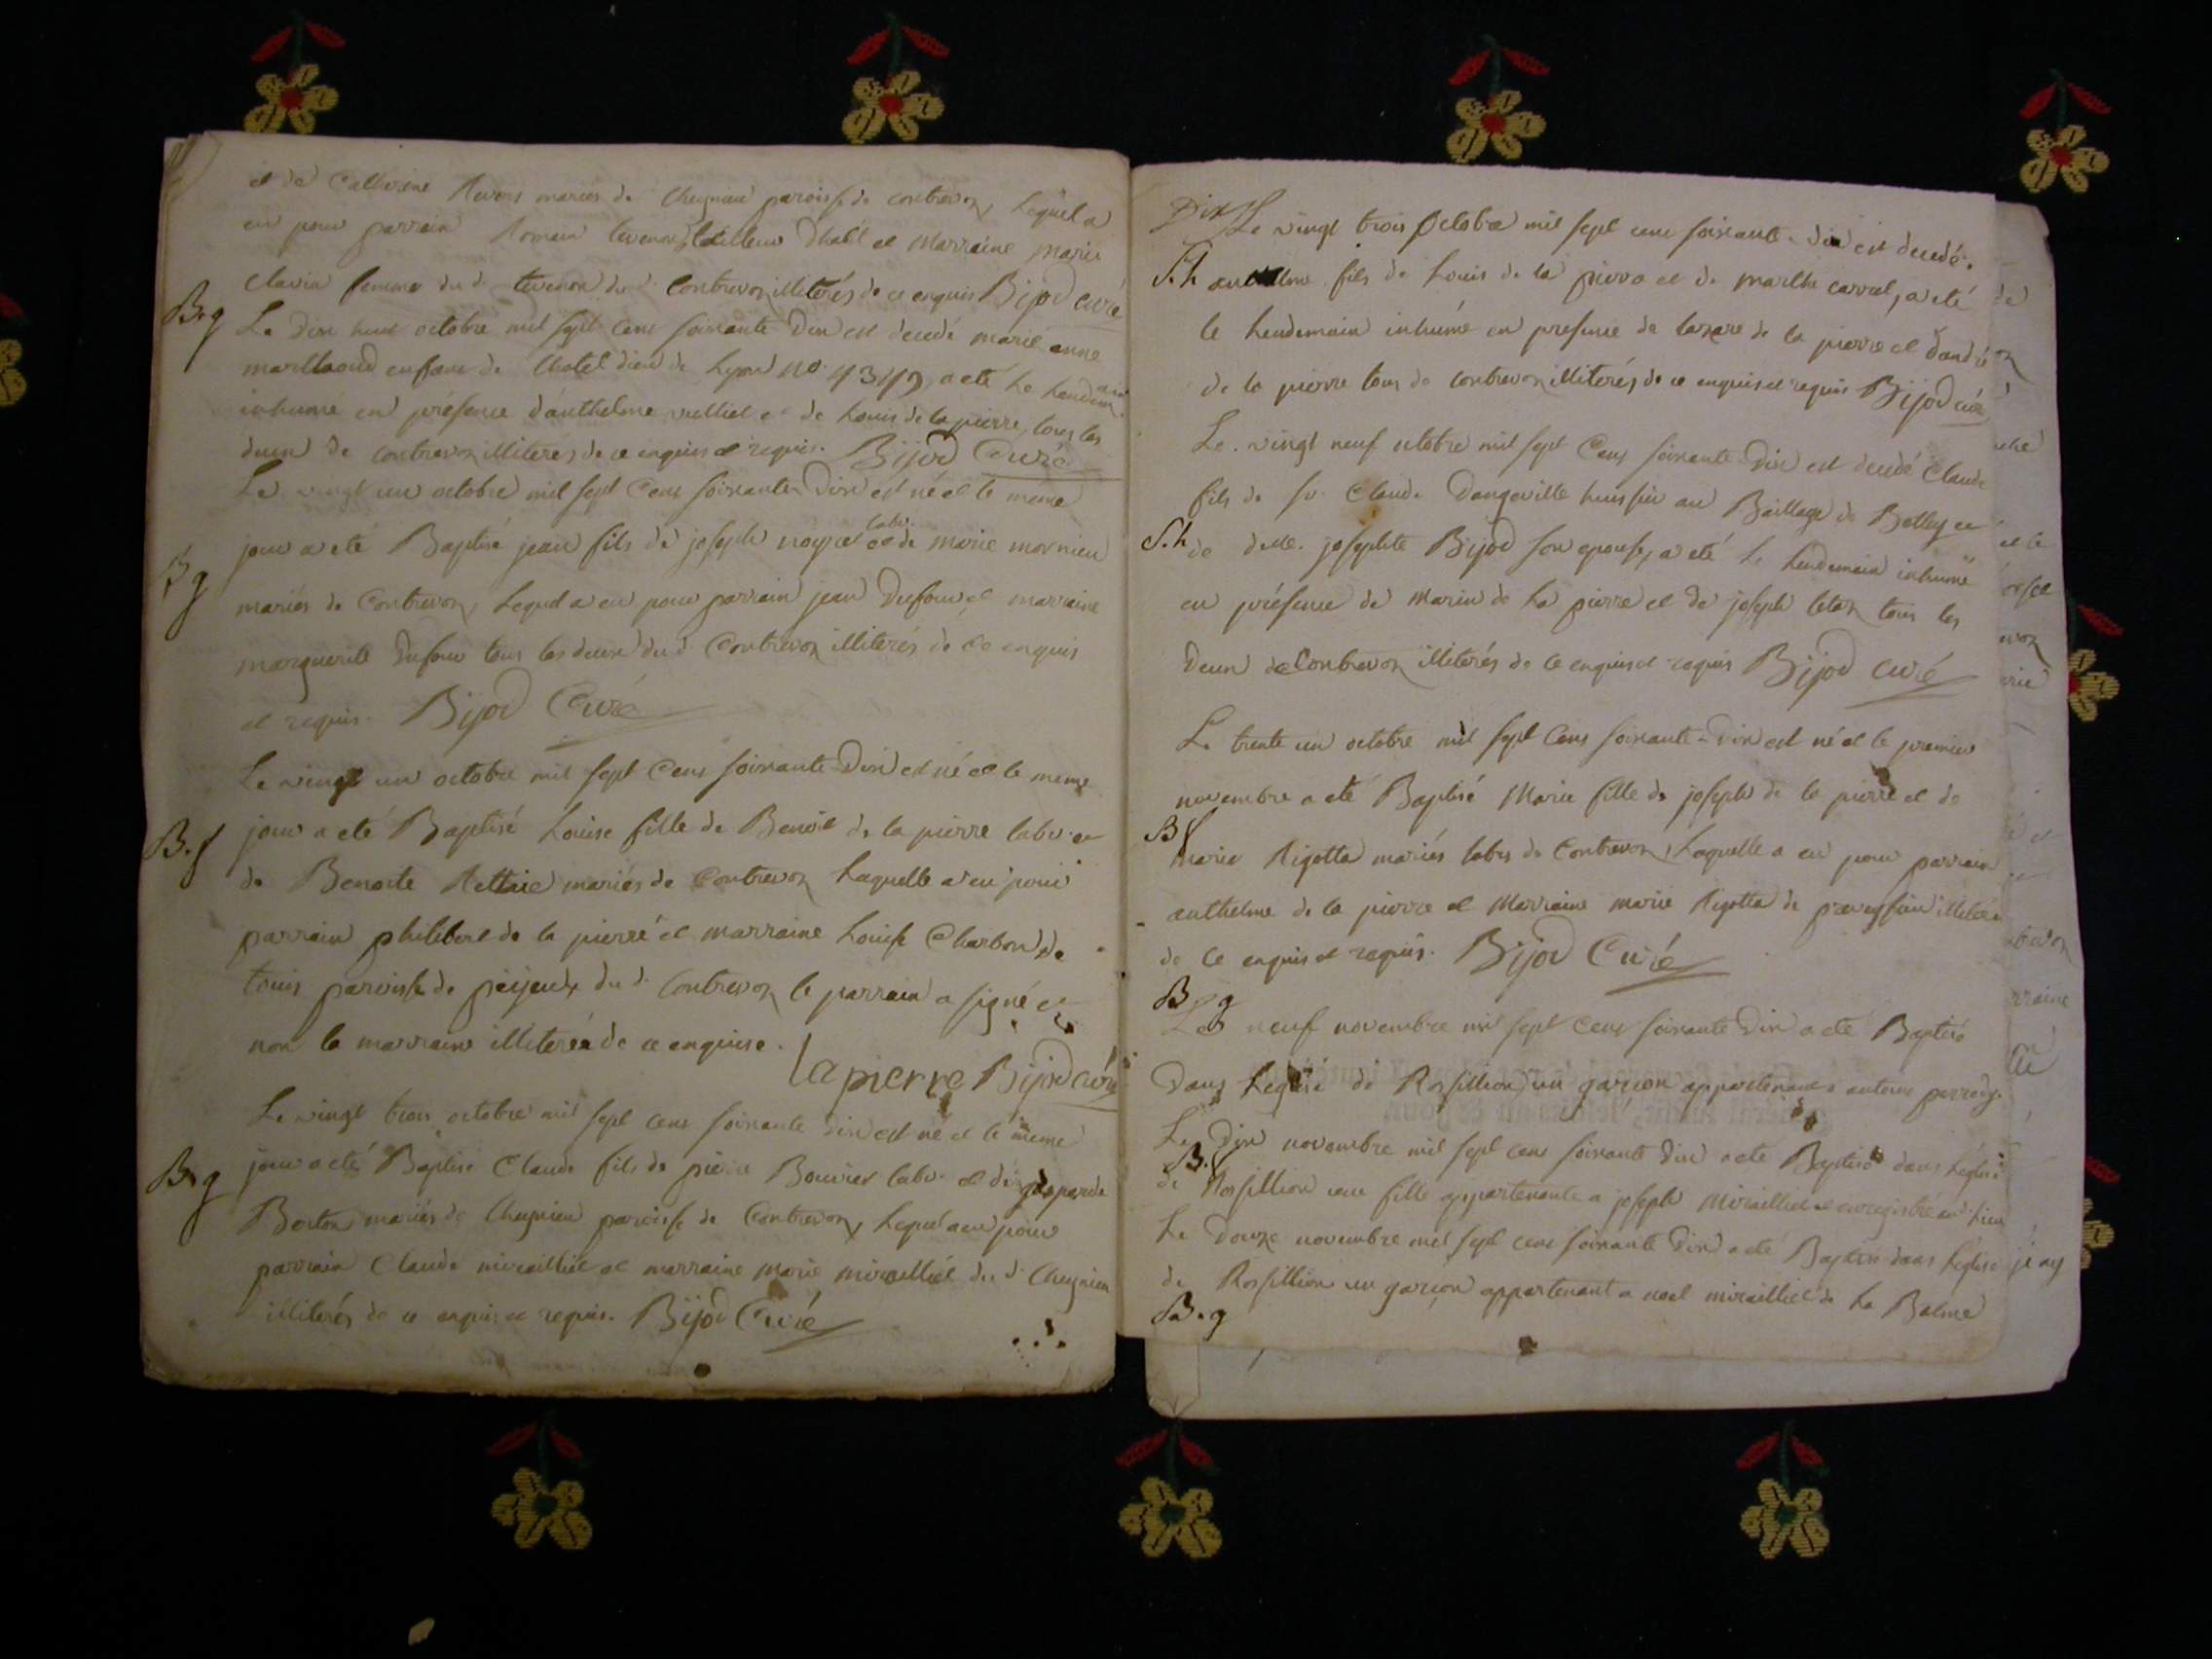 et de Catherine mariés de Cheignieu paroisse de contrevoz, Lequel a
eu pour parrain Romain tevenon tailleur dhabit et Marraine marie
clavin femme du d. tevenon du d. Contrevoz illiterés de ce enquis Bijod curé
B. g
Le dix huit octobre mil sept cens soixante Dix est decedé marie anne
enfant de lhotel dieu de Lyon no. 4349, a eté le lendemain
inhumé en présence danthelme vuilliet et de Louis de la pierre, tous les
deux de contrevoz illiterés de ce enquis et requis. Bijod Curé
Le vingt un octobre mil sept Cens soixante Dix est né et le meme
jour a eté Baptisé jean fils de joseph noyel labr. et de marie mornieu
B g
mariés de Contrevoz, Lequel a eu pour parrain jean Dufour et marraine
marguerite Dufour tous les deux du d. Contrevoz illiterés de ce enquis
et requis. Bijod Curé
Le vingt un octobre mil sept Cens soixante Dix est né et le meme
B. f
jour a eté Baptisé Louise fille de Benoit de la pierre labr. et
de Benoite mariés de Contrevoz Laquelle a eu pour
parrain philibert de la pierre et marraine Louise Charbon de
paroisse de peyzieux du d. Contrevoz le parrain a signé et
non la marraine illiterée de ce enquise.
lapierre Bijod curé
Le vingt trois octobre mil sept cens soixante dix est né et le meme
B. g
jour a eté Baptisé Claude fils de pierre Bouvier labr. et de gasparde
Berton mariés de Cheignieu paroisse de Contrevoz, Lequel a eu pour
parrain Claude miraillet et marraine marie miraillet du d. Cheignieu
illiterés de ce enquis et requis. Bijod Curé
Dix
Le vingt trois Octobre mil sept cens soixante - dix est decedé
S. h
anthelme fils de Louis de la pierre et de marthe carrel, a eté
le Lendemain inhumé en presence de lazare de la pierre et dandré
de la pierre tous de contrevoz illiterés de ce enquis et requis Bijod curé
Le vingt neuf octobre mil sept Cens soixante Dix est decedé Claude
fils de sr. Claude Dangeville huissier au Baillage de Belley et
S. h
de delle. josephte Bijod son epouse, a eté le Lendemain inhumé
en présence de Marin de La pierre et de joseph tous les
Deux de Contrevoz illiterés de ce enquis et requis Bijod curé
Le trente un octobre mil sept Cens soixante - Dix est né et le premier
novembre a eté Baptisé Marie fille de joseph de la pierre et de
B f
marie Rigottier mariés labrs de Contrevoz, Laquelle a eu pour parrain
anthelme de la pierre et Marraine marie Rigottier de illiterés
de ce enquis et requis. Bijod Curé
B g
Le neuf novembre mil sept Cens soixante Dix a eté Baptisé
Dans Leglise de Rossillion un garçon appartenant a antoine
Le Dix novembre mil sept cens soixante Dix a eté Baptisé dans Leglise
B. f
de Rossillion une fille appartenante a joseph miraillet et enregistré au Lieu
Le Douze novembre mil sept cens soixante Dix a eté Baptisé dans Leglise
de Rossillion un garçon appartenant a noel miraillet de La Balme
B. g